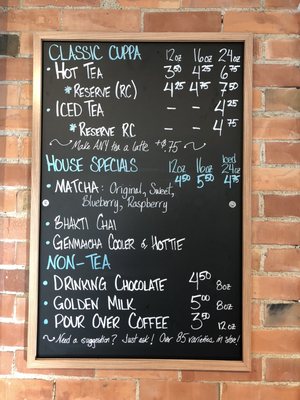 CLASSIC CUPPA 12oz 16oz 24oz
• HOT TEA 3.50 4.25 6.75
* RESERVE (RC) 4.25 4.75 7.50
• ICED TEA - - 4.25
* RESERVE RC - - 4.75
~ Make ANY tea a latte +$.75 ~
HOUSE SPECIALS 12oz 16oz Iced 24oz
• MATCHA: Original, Sweet, 4.50 5.50 4.75
Blueberry, Raspberry
• BHAKTI CHAI
• GENMAICHA COOLER & HOTTIE
NON-TEA
• DRINKING CHOCOLATE 4.50 8oz
• GOLDEN MILK 5.00 8oz
• POUR OVER COFFEE 3.50 12oz
~ Need a suggestion? Just ask! Over 85 varieties in store! ~